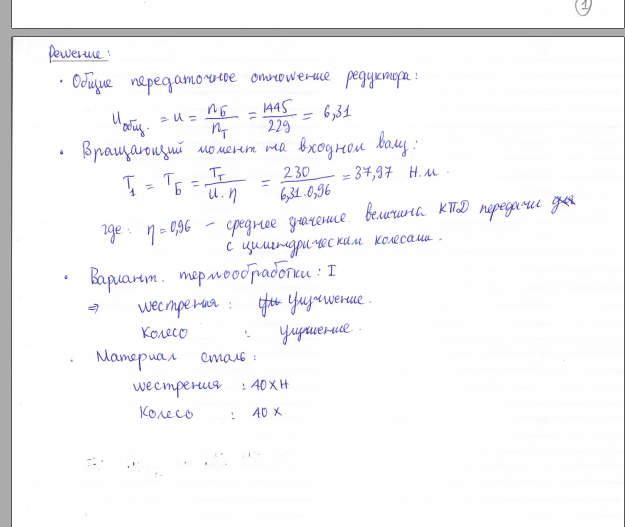 1
Решение:
· Общие передаточное отношение редуктора:
Uобщ. = u = nБ/nТ = 1445/229 = 6,31
· Вращающий момент на входном валу:
T1 = TБ = TТ/u.η = 230/6,31.0,96 = 37,97 Н.м.
где: η = 0,96 – среднее значение величина КПД передачи
с цилиндрическим колесами.
· Вариант. термообработки: I
⇒ шестрения: Улучшение.
Колесо : улучшение.
· Материал сталь:
шестрения : 40ХН
Колесо : 40 Х